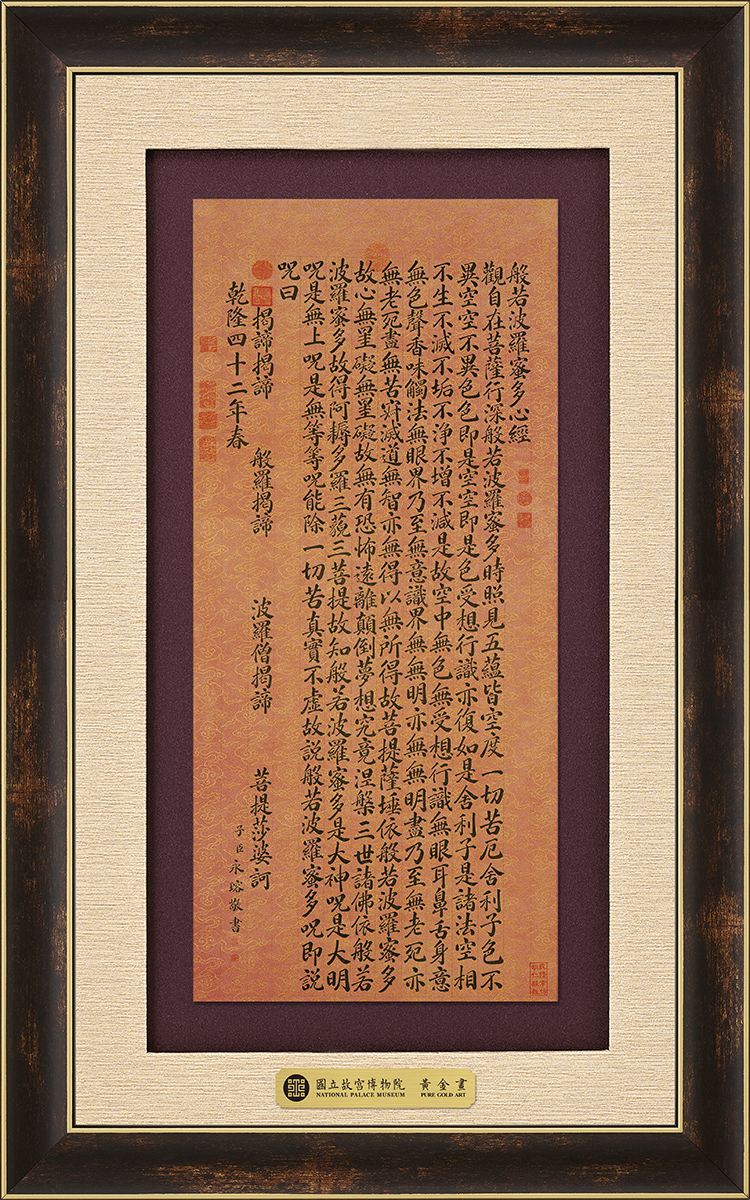 般若波羅蜜多心經
觀自在菩薩行深般若波羅蜜多時照見五蘊皆空度一切苦厄舍利子色不
異空空不異色色即是空空即是色受想行識亦復如是舍利子是諸法空相
不生不滅不垢不淨不增不減是故空中無色無受想行識無眼耳鼻舌身意
無色聲香味觸法無眼界乃至無意識界無無明亦無無明盡乃至無老死亦
無老死盡無苦集滅道無智亦無得以無所得故菩提薩埵依般若波羅蜜多
故心無罣礙無罣礙故無有恐怖遠離顛倒夢想究竟涅槃三世諸佛依般若
波羅蜜多故得阿耨多羅三藐三菩提故知般若波羅蜜多是大神呪是大明
呪是無上呪是無等等呪能除一切苦真實不虛故說般若波羅蜜多呪即說
呪曰
揭諦揭諦 般羅揭諦 波羅僧揭諦 菩提莎婆訶
乾隆四十二年春 子臣永瑢敬書
國立故宮博物院 黃金畫
NATIONAL PALACE MUSEUM PURE GOLD ART